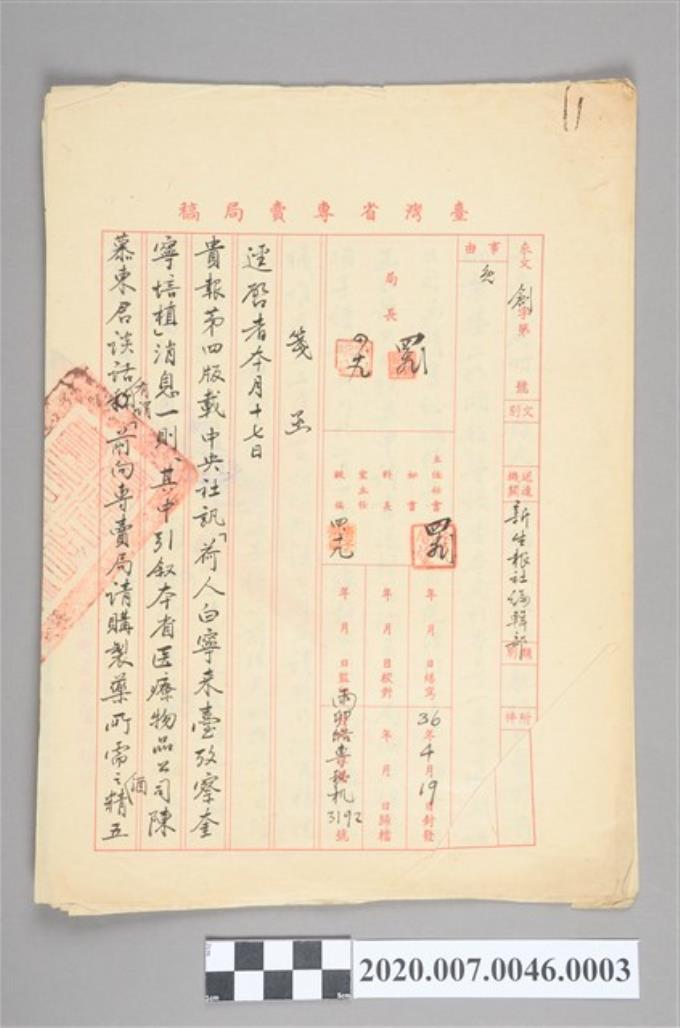 臺灣省專賣局稿
來文 創字第 號
文別
送達機關 新生報社編輯部
類別
附件
事由
局長
四、九
主任秘書
秘書
科長
室主任
擬稿
四、九
年 月 日繕寫
年 月 日校對
年 月 日監
36年4月19日封發
年 月 日歸檔
專秘机3192號
箋函
逕啟者本月十七日
貴報第四版載中央社訊「荷人白寧來臺攷察奎
寧培植」消息一則、其中引叙本省医療物品公司陳
慕東君談話有謂「前向專賣局請購製藥所需之酒精五
2020.007.0046.0003